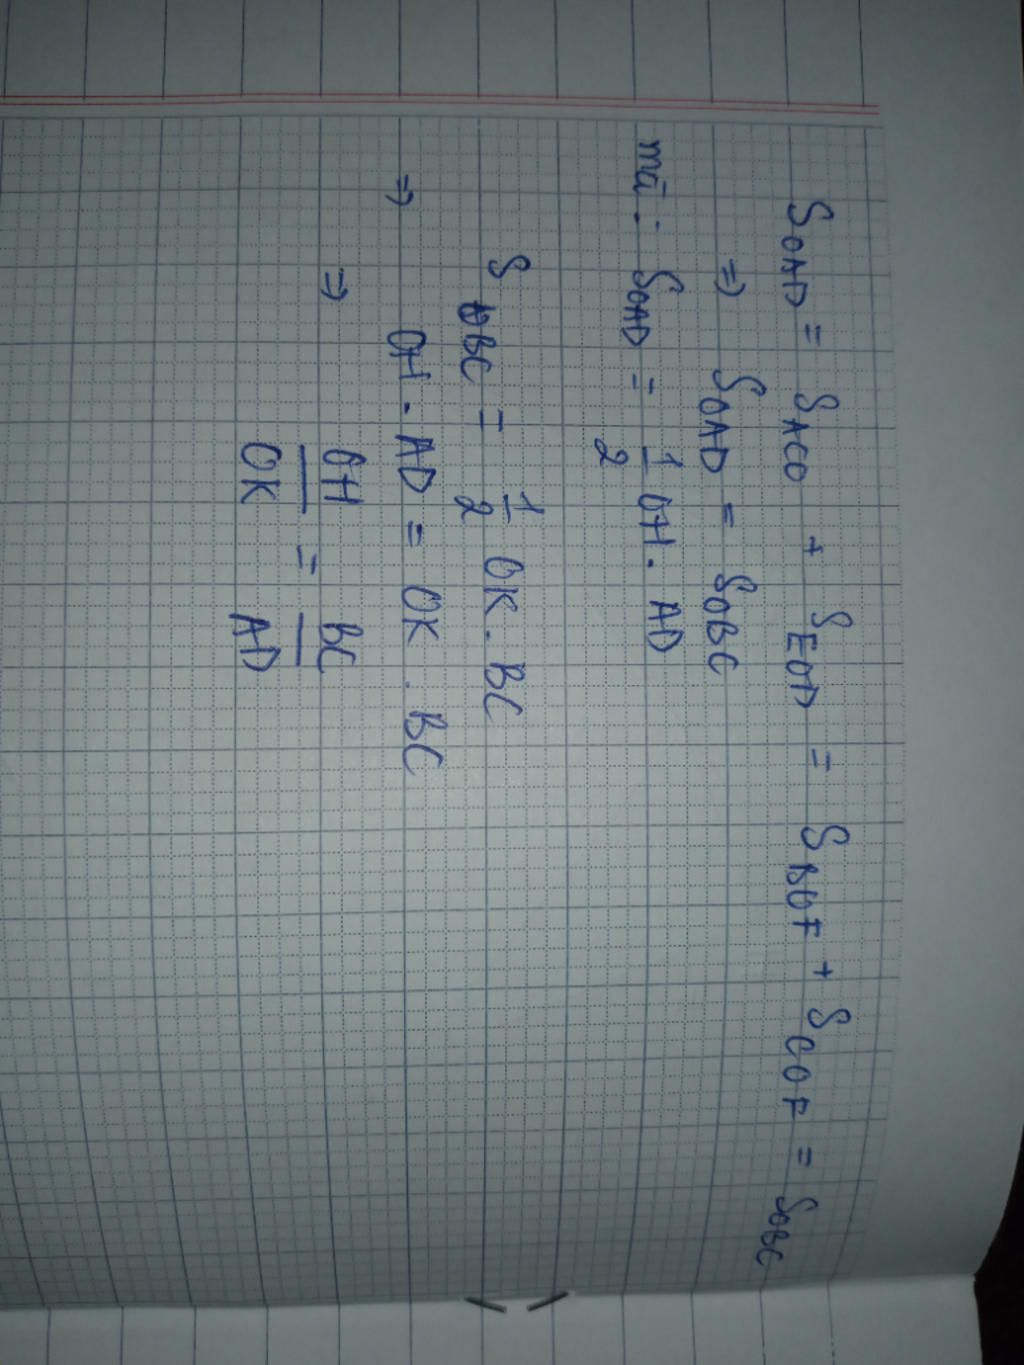 S_OAD = S_ACO + S_EOD = S_BOF + S_COF = S_OBC
⇒ S_OAD = S_OBC
mà : S_OAD = 1/2 OH . AD
S_OBC = 1/2 OK . BC
⇒ OH . AD = OK . BC
⇒ OH/OK = BC/AD